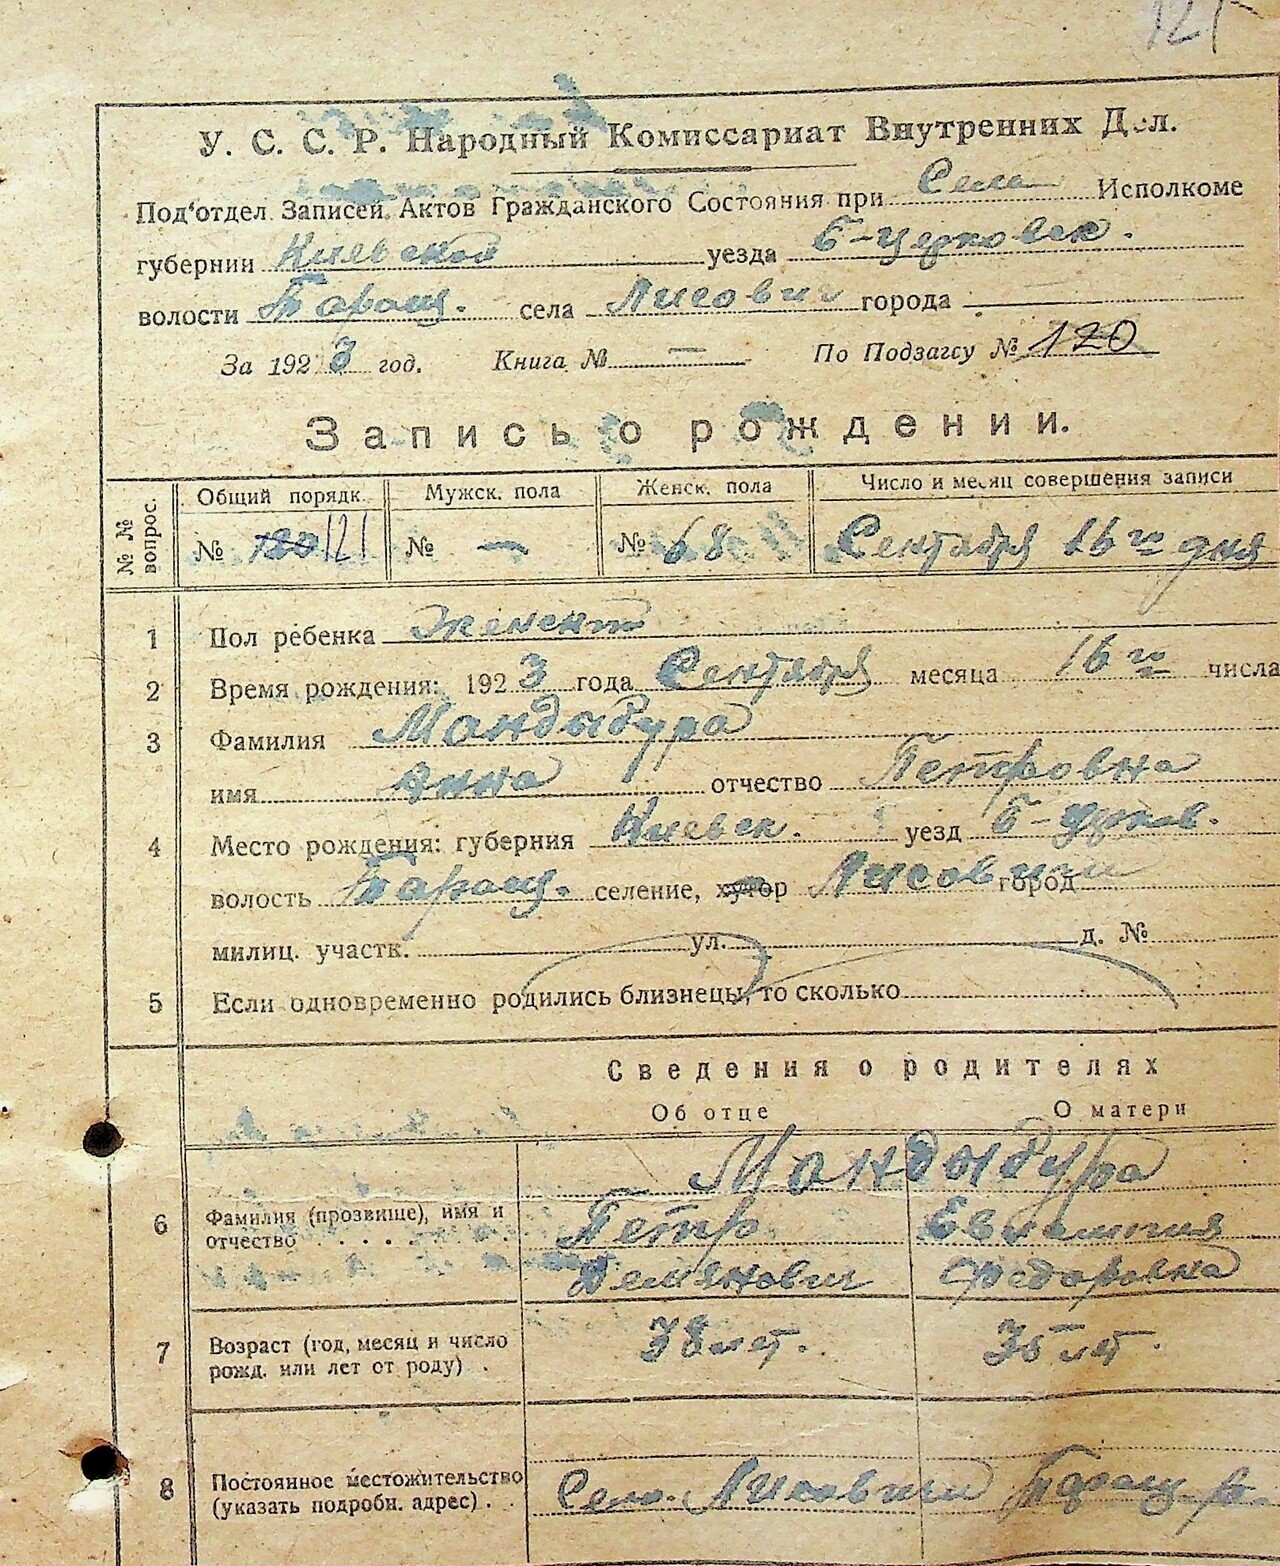 121
У. С. С. Р. Народный Комиссариат Внутренних Дел.
Под'отдел Записей Актов Гражданского Состояния при Селе Исполкоме
губернии Киевской уезда Б-Церковск.
волости Таращ. села Лисович города —
За 1923 год. Книга № — По Подзагсу № 120
Запись о рождении.
№ № вопрос. Общий порядк. Мужск. пола Женск. пола Число и месяц совершения записи
№ 120 121 № — № 68 Сентября 16го дня
1 Пол ребенка Женский
2 Время рождения: 1923 года Сентября месяца 16го числа
3 Фамилия Мандыбура
имя Анна отчество Петровна
4 Место рождения: губерния Киевск. уезд Б-Церков.
волость Таращ. селение, хутор Лисовичи город
милиц. участк. ул. д. №
5 Если одновременно родились близнецы, то сколько
Сведения о родителях
Об отце О матери
Мандыбура
6 Фамилия (прозвище), имя и Петр
отчество . . . . Демянович Федоровна
7 Возраст (год, месяц и число 38 лет. 35 лет.
рожд. или лет от роду) .
8 Постоянное местожительство Село Лисовичи Таращ. в.
(указать подробн. адрес) . .